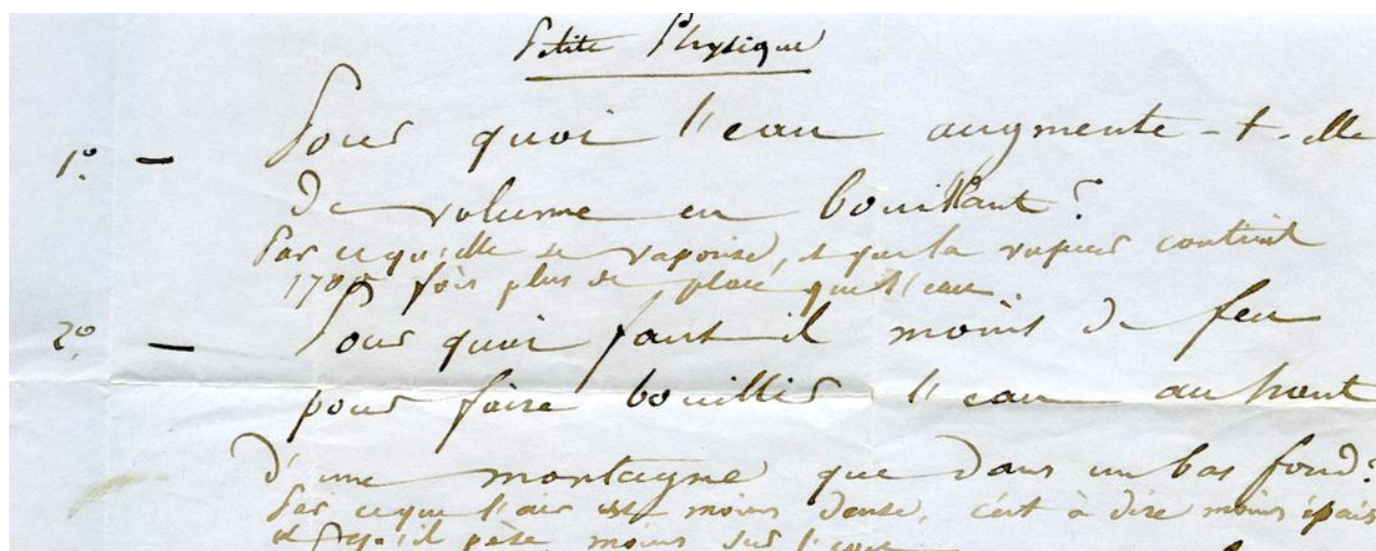 Petite Physique
1º. — Pour quoi l'eau augmente-t-elle
de volume en bouillant?
Par ce qu'elle se vaporise, et que la vapeur contient
1700 fois plus de place que l'eau.
2º. — Pour quoi faut-il moins de feu
pour faire bouillir l'eau au haut
d'une montagne que dans un bas fond?
Par ce que l'air est moins dense, c'est à dire moins épais
et qu'il pèse moins sur l'eau